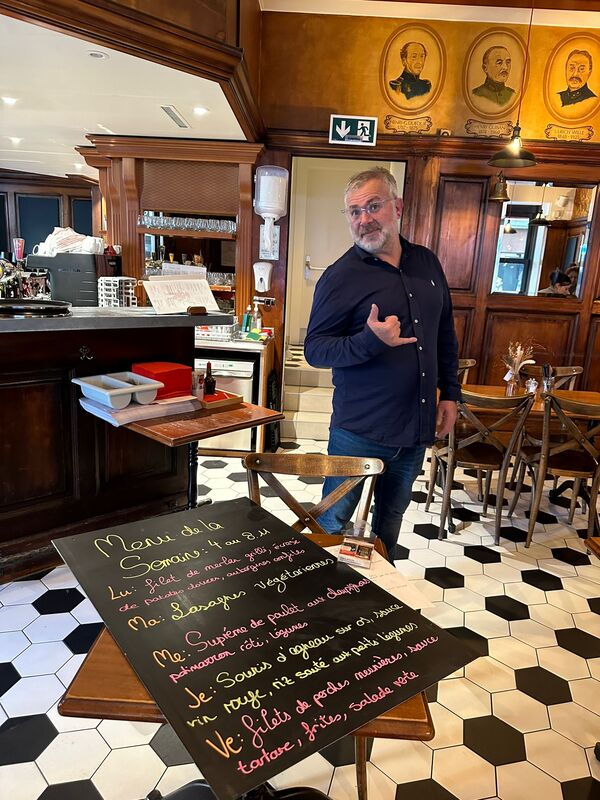 HENRI G. DUFOUR
1787 - 1875
ULRICH WILLE
Menu de la
Semaine: 4 au 8.11
Lu: Filet de merlan grillé, écrasé
de patates douces, aubergines confites
Ma: Lasagnes Végétariennes
Me: Suprême de poulet aux champignons
potimarron rôti, légumes
Je: Souris d'agneau sur os, sauce
vin rouge, riz sauté aux petits légumes
Ve: Filets de perches meunières, sauce
tartare, frites, salade verte